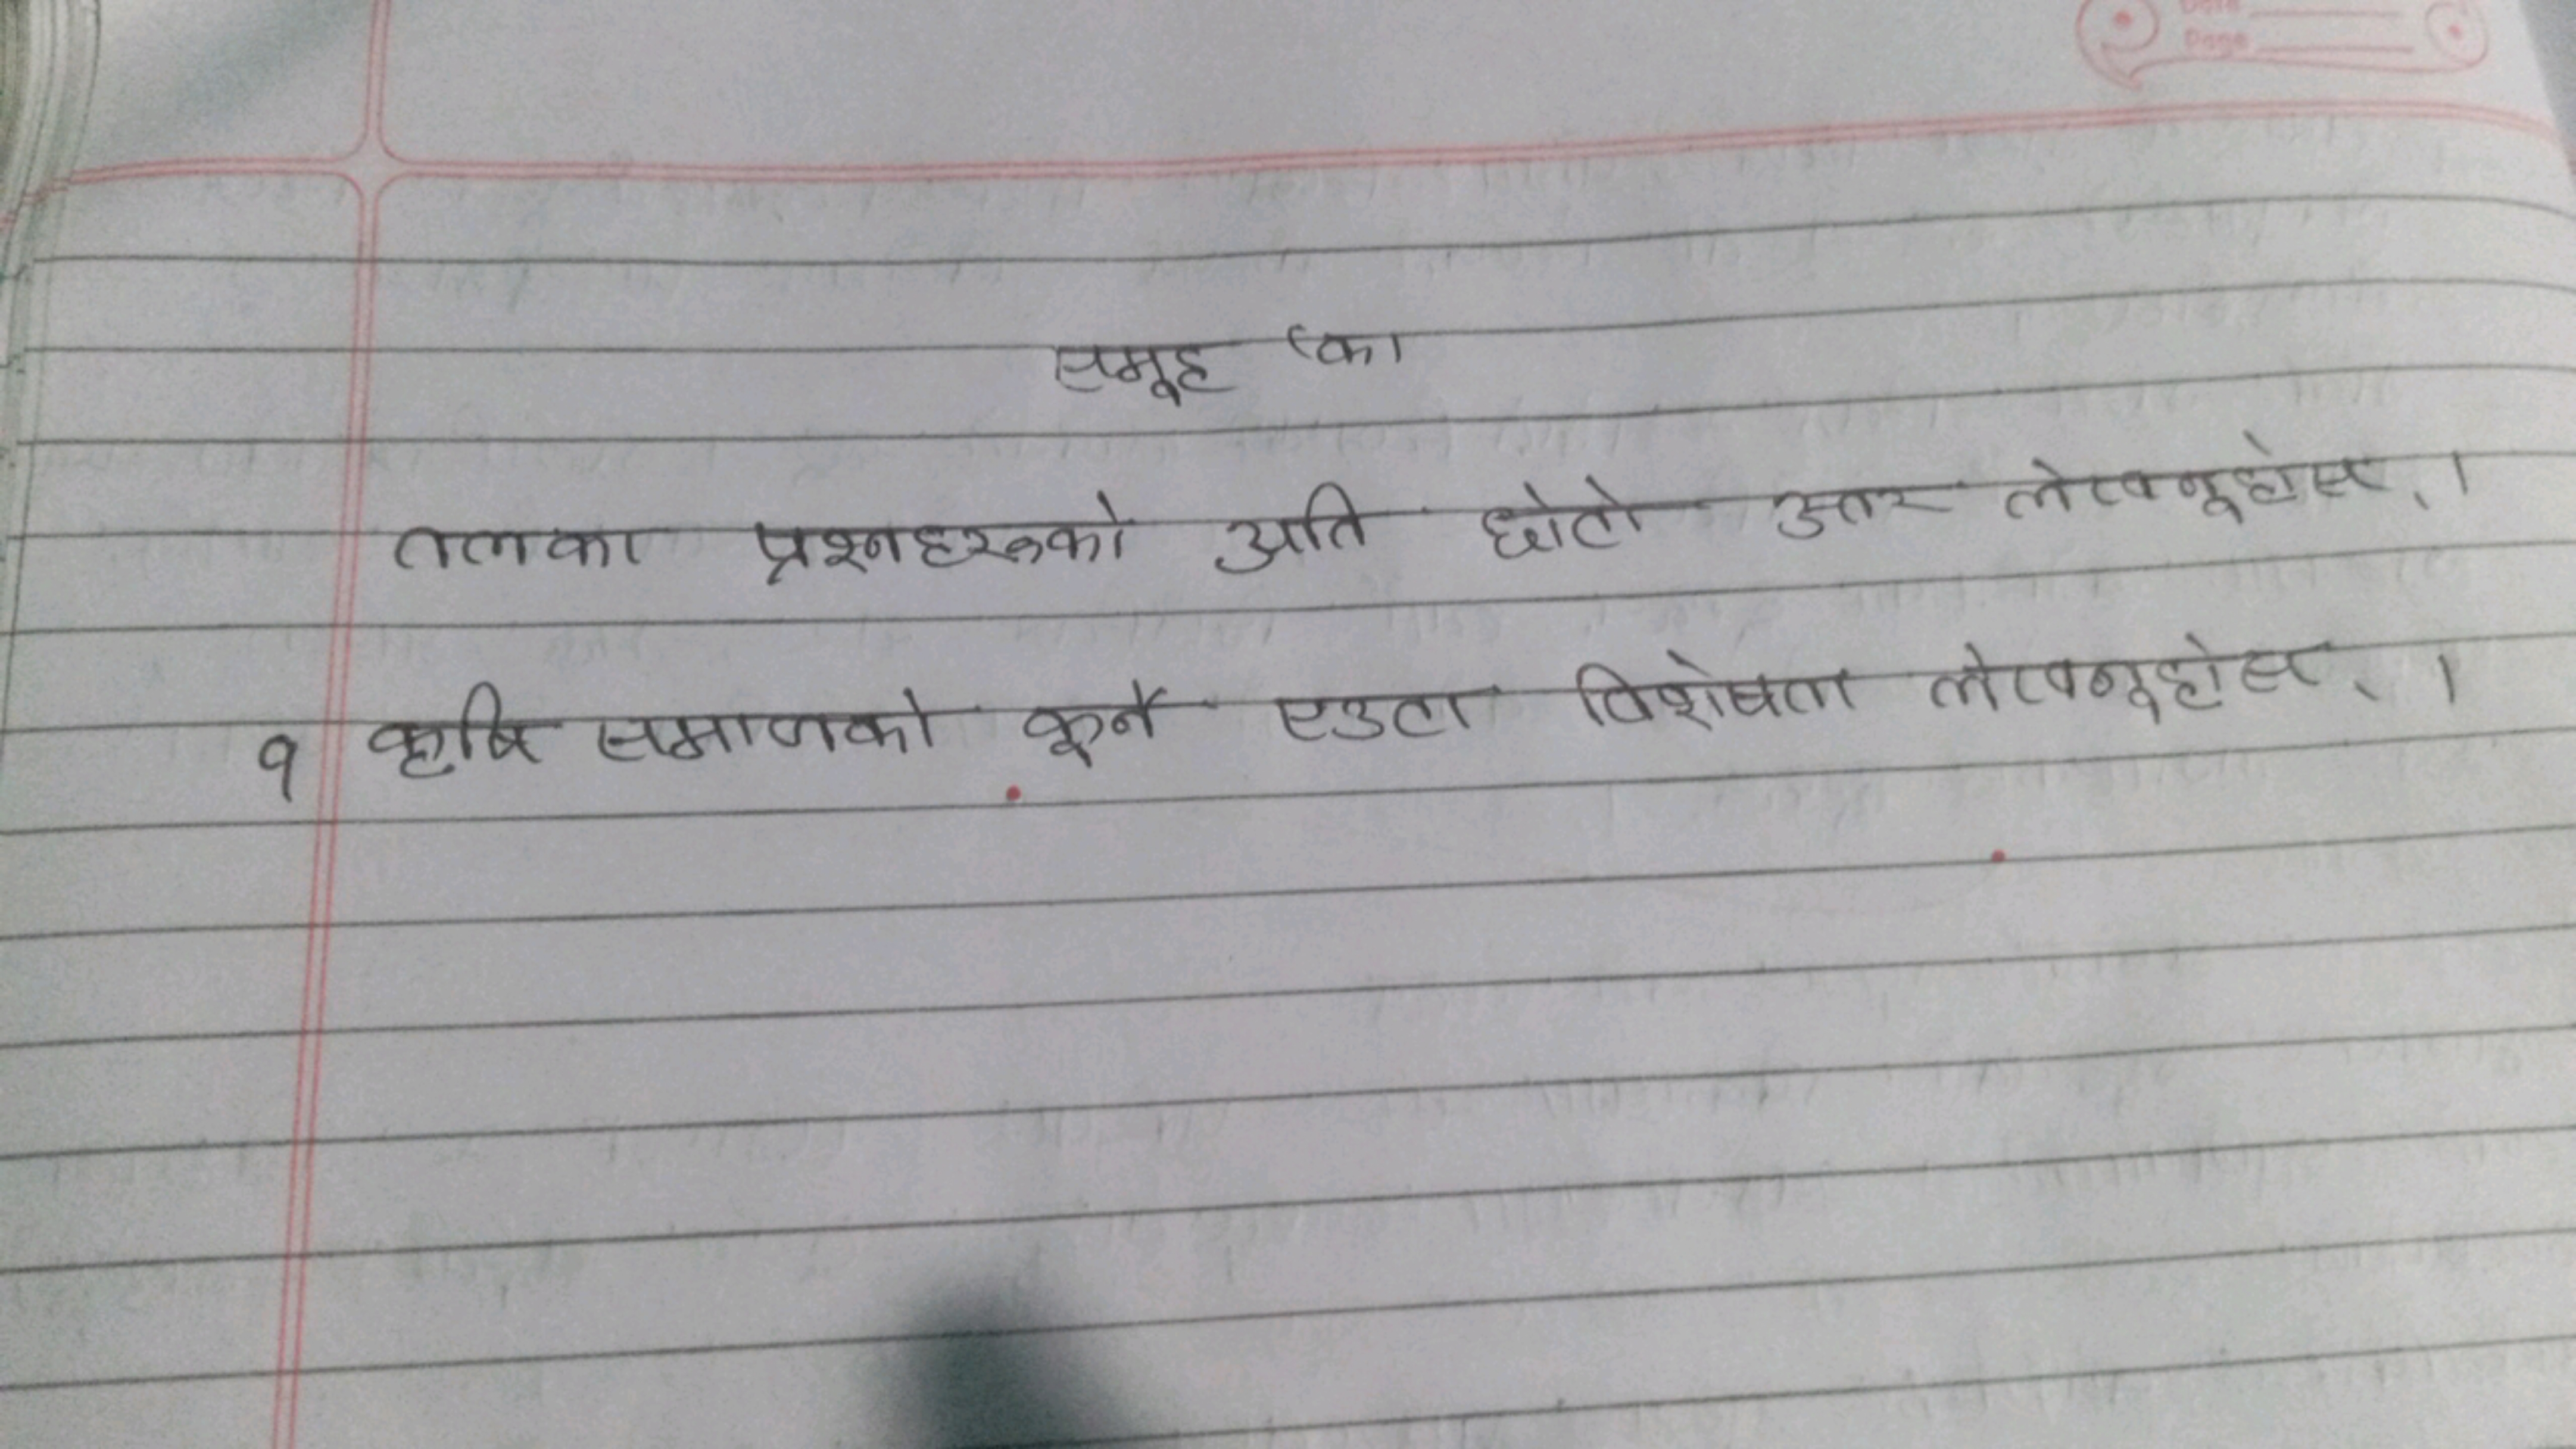 Date
Page
समूह 'का'
तलका प्रश्नहरुको अति छोटो उतर लेख्नूहोस् ।
१ कृषि समाजको कूनै एउटा विशेषता लेख्नूहोस् ।